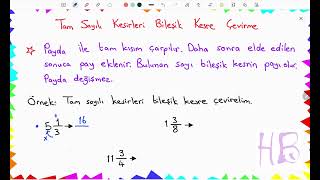 Tam Sayılı Kesirleri Bileşik Kesre Çevirme
Payda ile tam kısım çarpılır. Daha sonra elde edilen
sonuca pay eklenir. Bulunan sayı bileşik kesrin payı olur.
Payda değişmez.
Örnek: Tam sayılı kesirleri bileşik kesre çevirelim.
5 1/3 → 16
1 3/8 →
11 3/4 →
HB